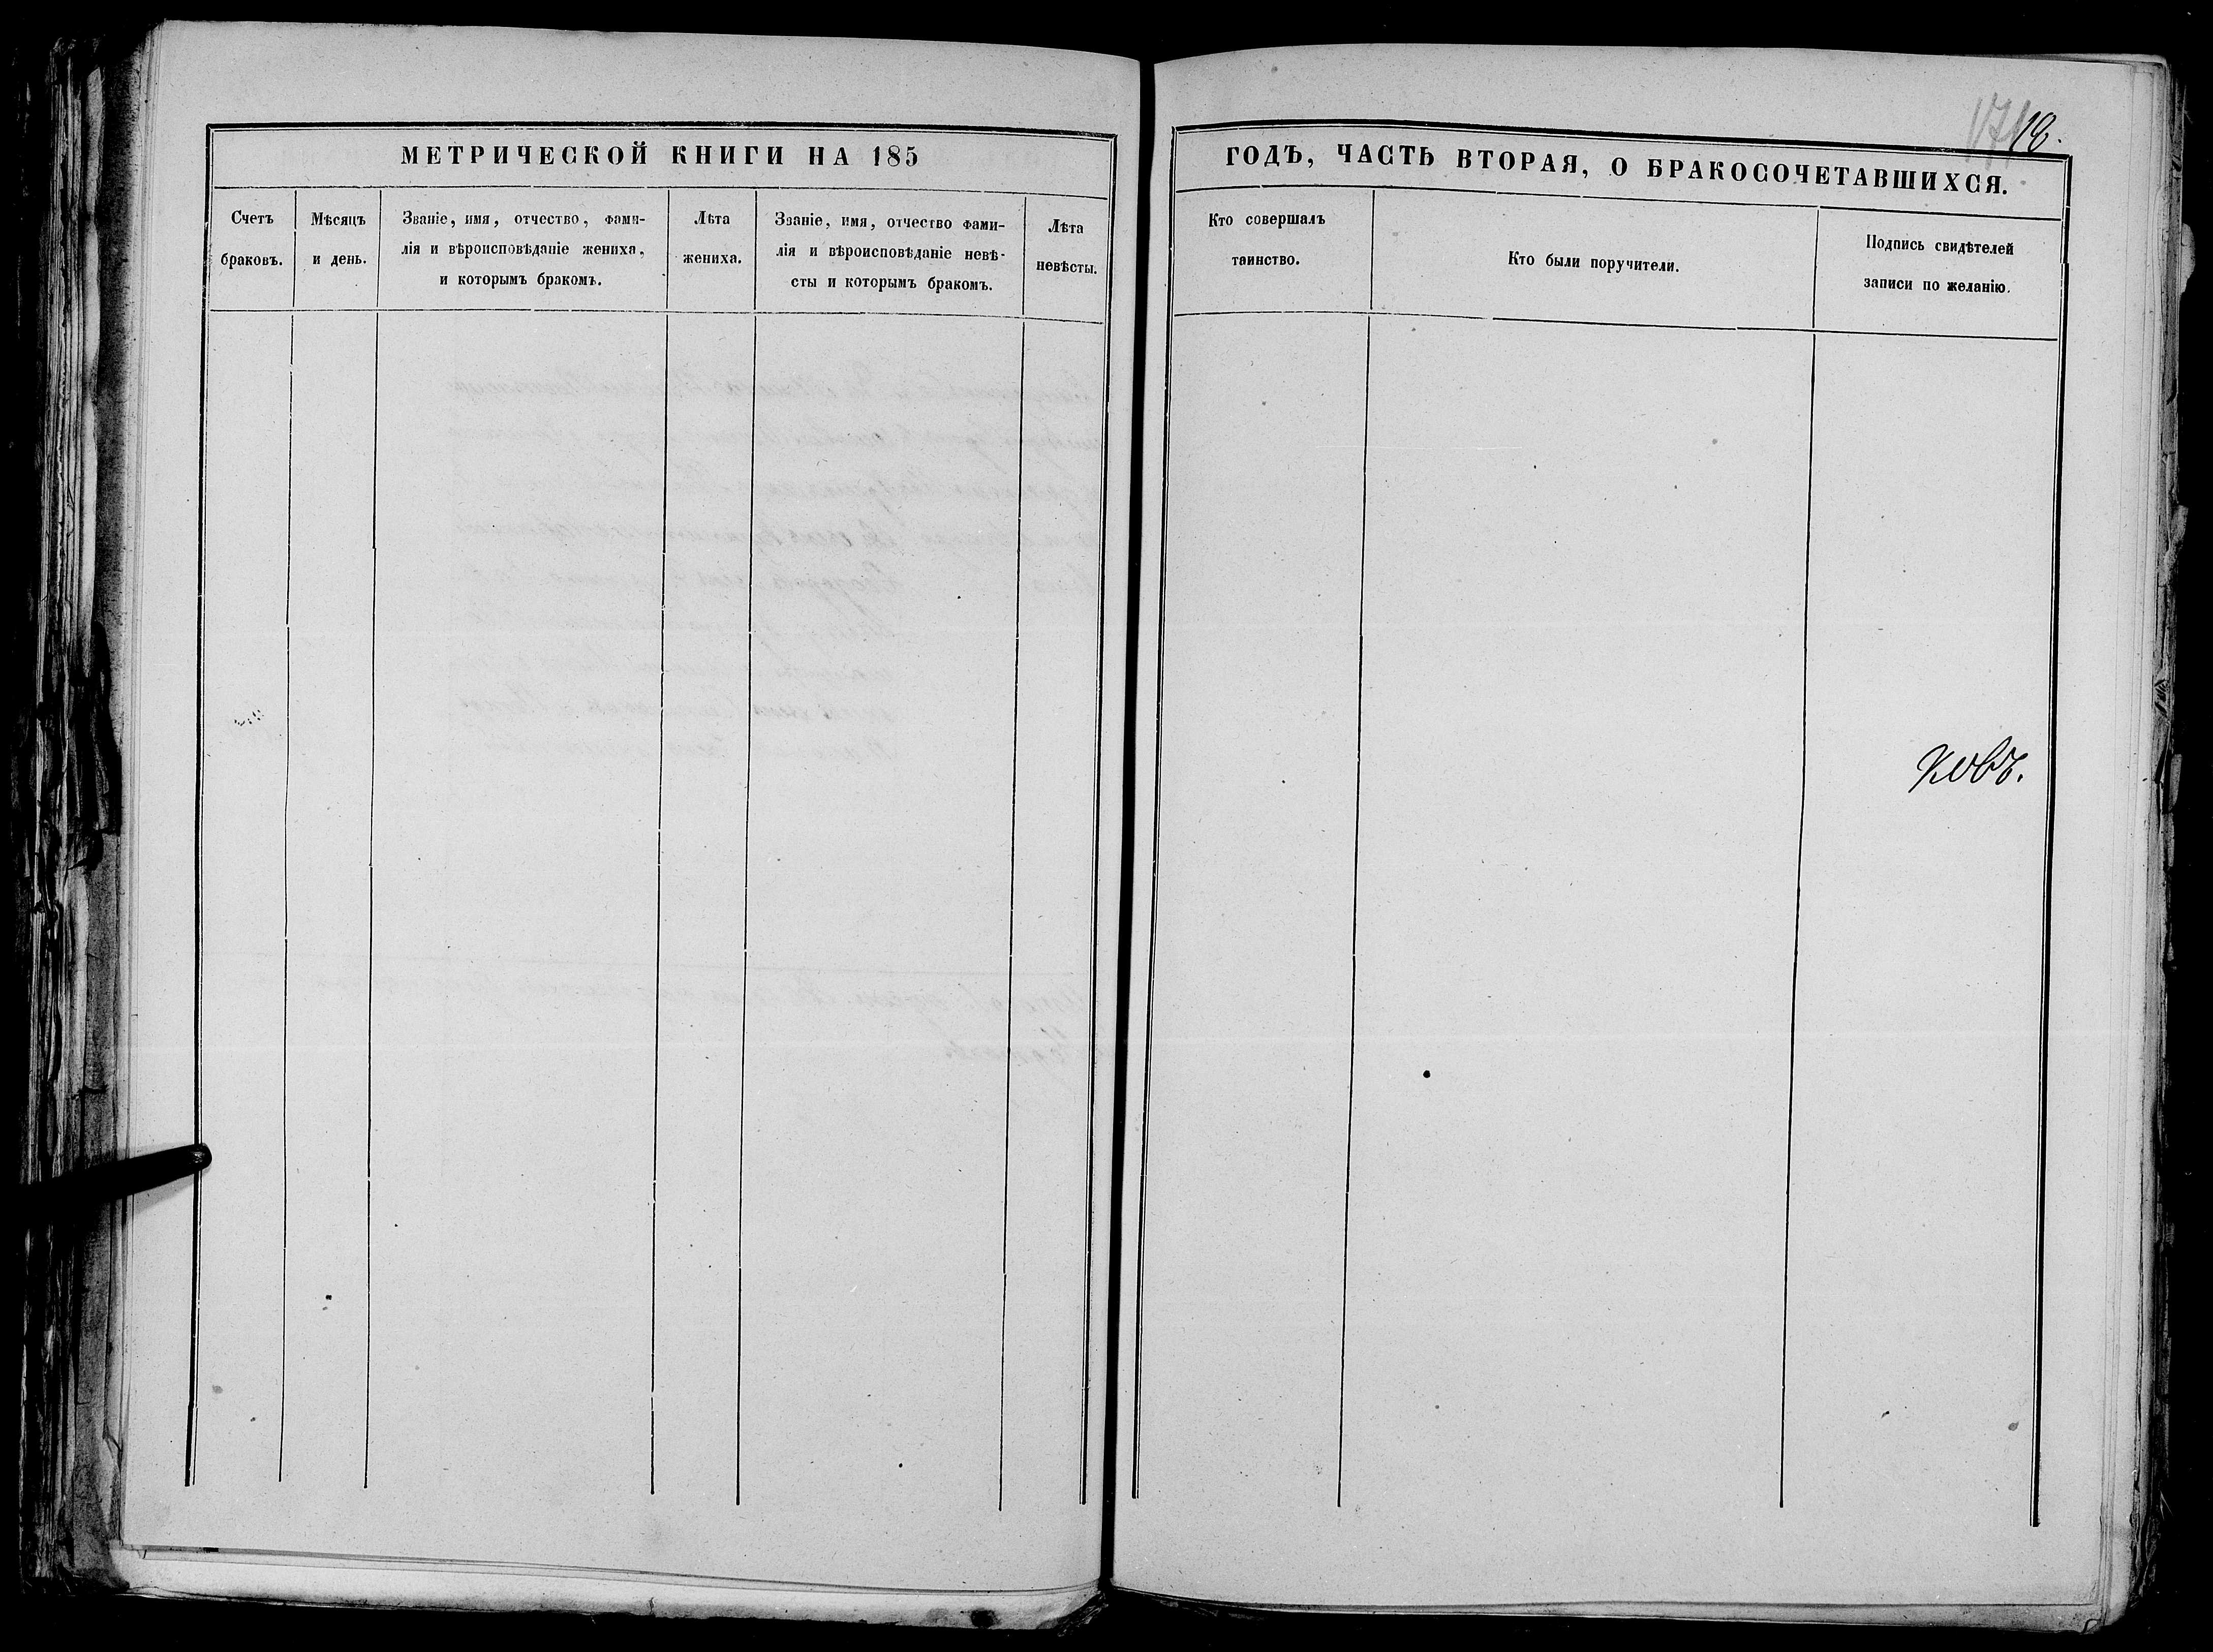 МЕТРИЧЕСКОЙ КНИГИ НА 185
Счетъ
браковъ.
Мѣсяцъ
и день.
Званіе, имя, отчество, фами-
лія и вѣроисповѣданіе жениха,
и которымъ бракомъ.
Лѣта
жениха.
Званіе, имя, отчество фами-
лія и вѣроисповѣданіе невѣ-
сты и которымъ бракомъ.
Лѣта
невѣсты.
18.
ГОДЪ, ЧАСТЬ ВТОРАЯ, О БРАКОСОЧЕТАВШИХСЯ.
Кто совершалъ
таинство.
Кто были поручители.
Подпись свидѣтелей
записи по желанію.
ковъ.